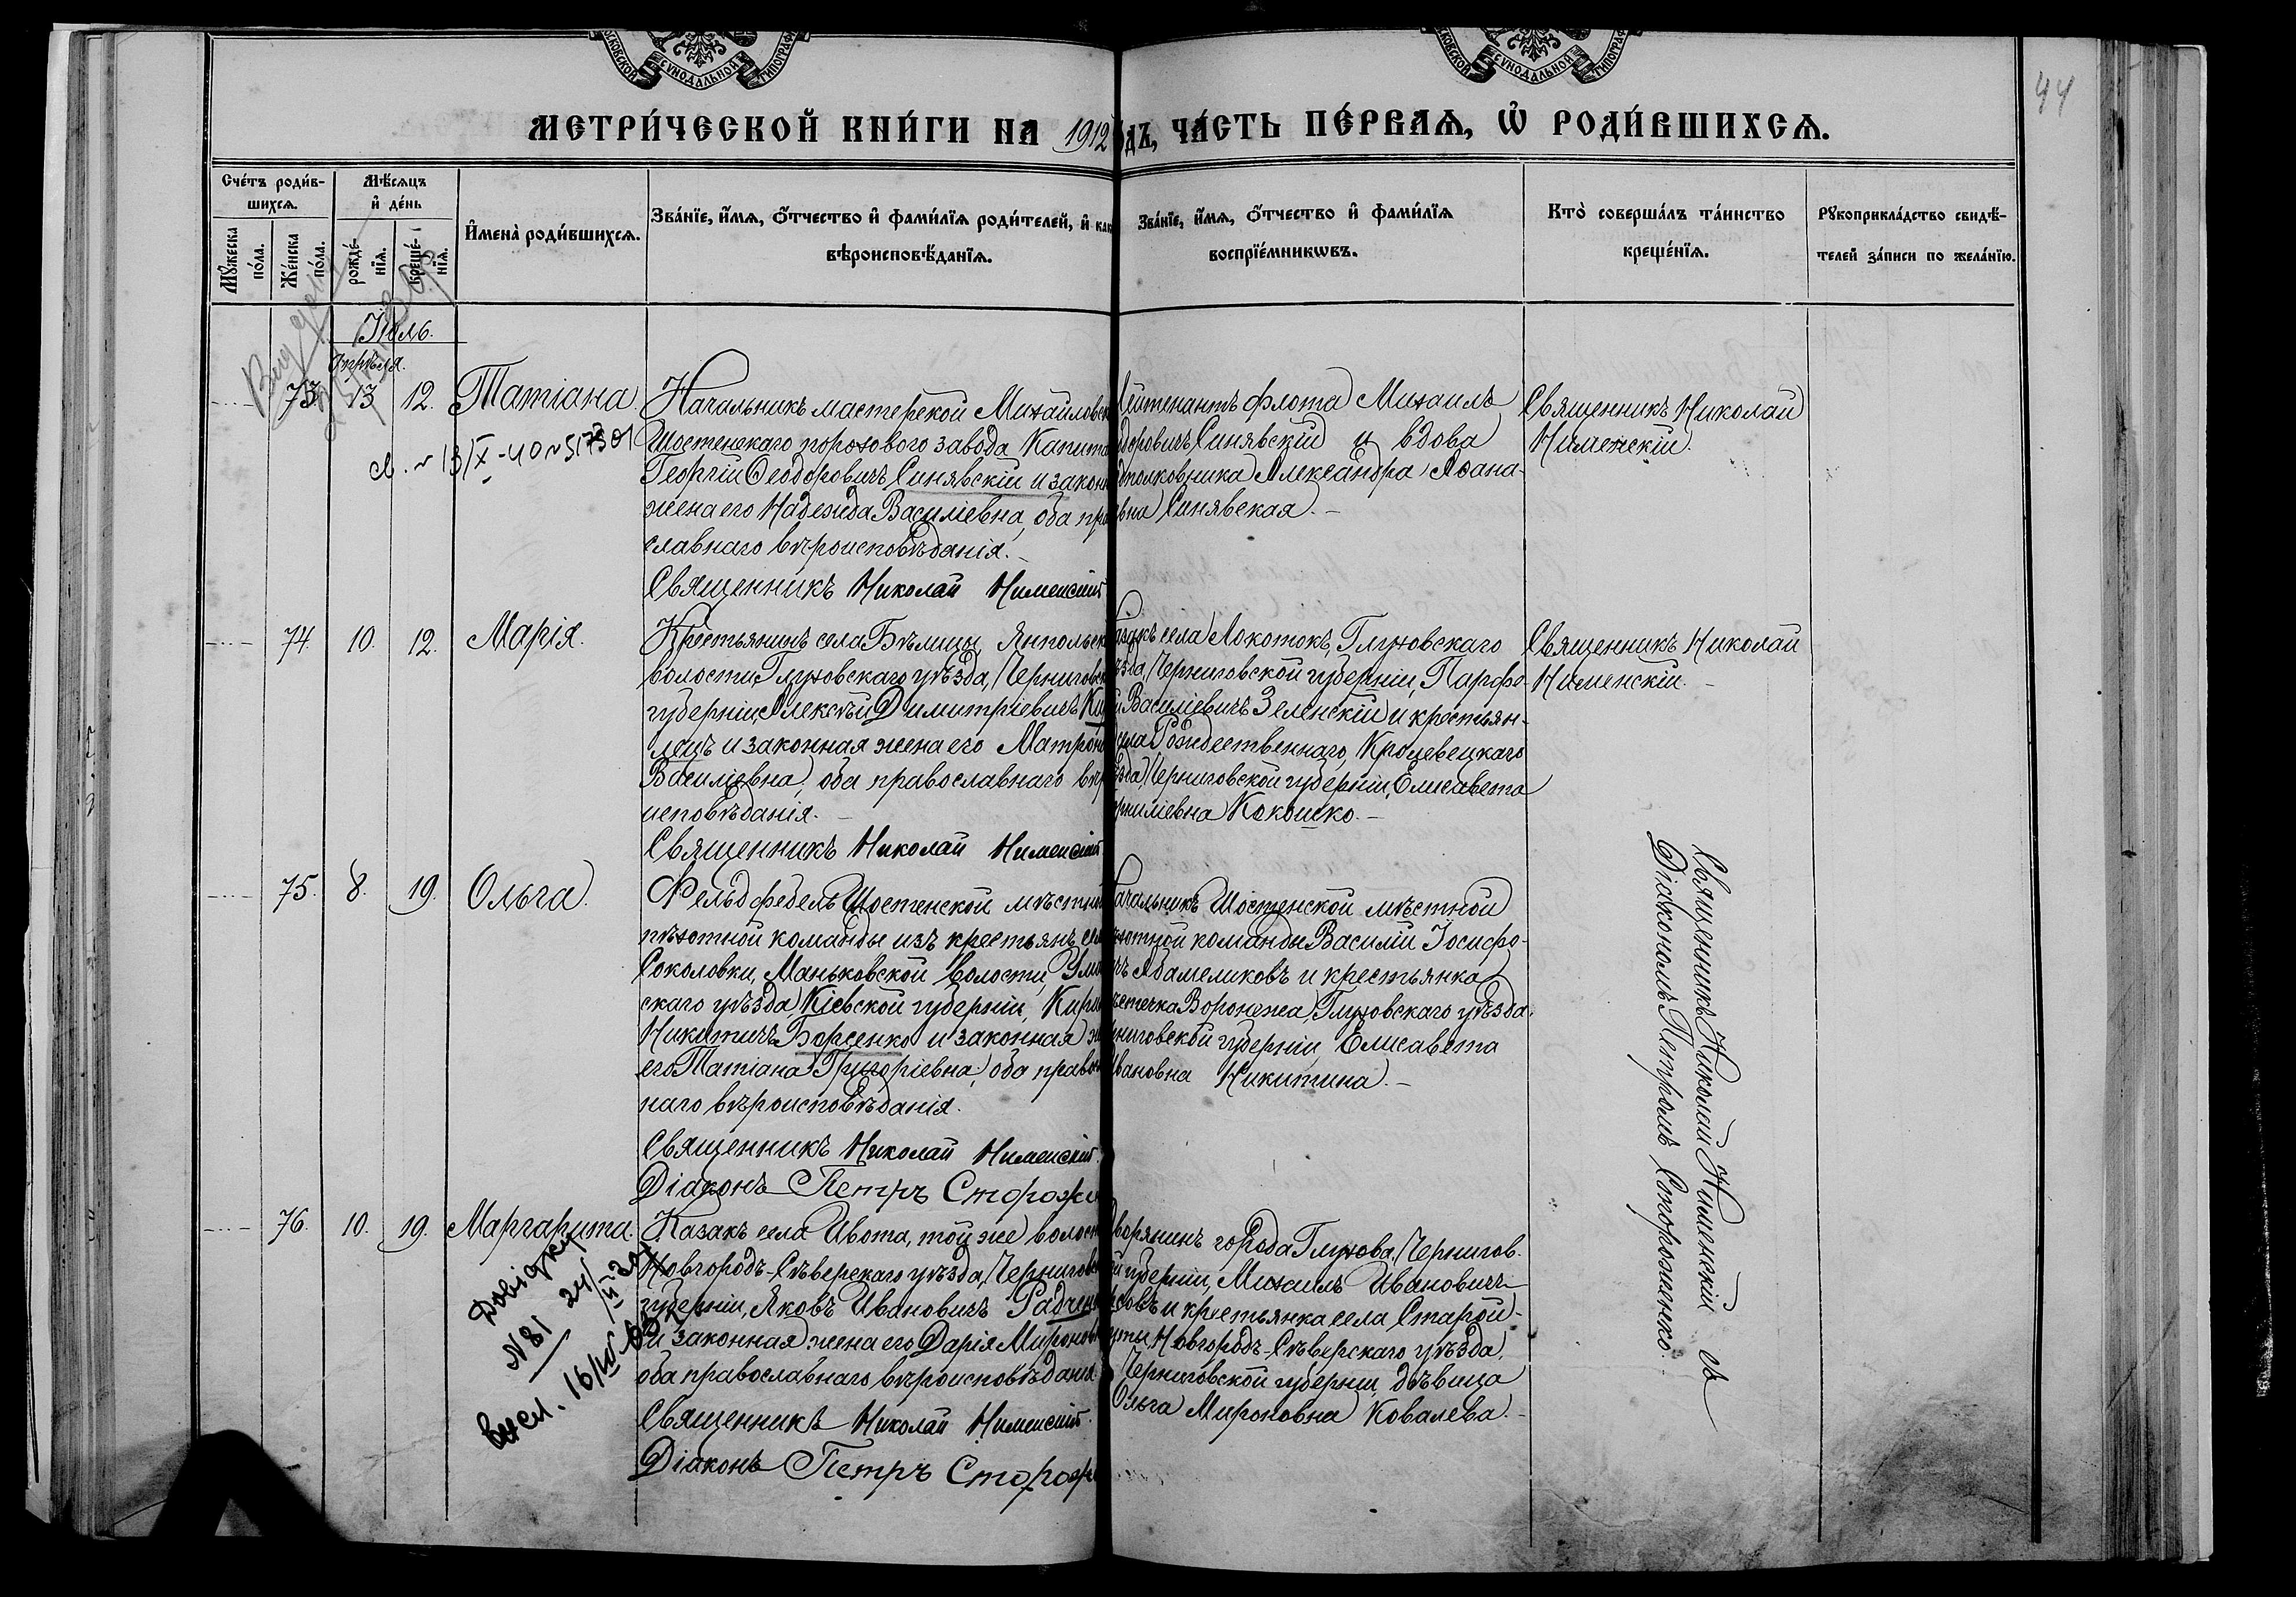 МОСКОВСКОЙ СѴНОДАЛЬНОЙ ТИПОГРАФ
СКОВСКОЙ СѴНОДАЛЬНОЙ ТИПОГРАФ
44
МЕТРИ́ЧЕСКОЙ КНИ́ГИ НА 1912 ДЪ, ЧА́СТЬ ПЕ́РВАѦ, Ѡ҆ РОДИ́ВШИХСѦ.
Сче́тъ роди́в-
шихсѧ.
Мꙋ́жеска
по́ла.
Же́нска
по́ла.
Мѣ́сѧцъ
и҆ де́нь
рожде́-
нїѧ.
креще́-
нїѧ.
И҆мена̀ роди́вшихсѧ.
Зва́нїе, и҆́мѧ, ѻ҆́тчество и҆ фами́лїѧ роди́телей, и҆ как
вѣроисповѣ́данїѧ.
Зва́нїе, и҆́мѧ, ѻ҆́тчество и҆ фами́лїѧ
воспрїе́мникѡвъ.
Кто̀ соверша́лъ та́инство
креще́нїѧ.
Рꙋкоприкла́дство свидѣ́-
телей за́писи по жела́нїю.
Июль.
Апрѣля.
73 13 12. Татіана.
Начальникъ мастерской Михайловск
Шостенскаго порохового завода Капита
Георгій Ѳеодоровичъ Синявскій и закон
жена его Надежда Василіевна, оба пра
славнаго вѣроисповѣданія.
Священникъ Николай Нименскій
Лейтенантъ флота Михаилъ
одоровичъ Синявскій и вдова
дполковника Александра Аѳана-
вна Синявская.
Священникъ Николай
Нименскій.
74. 10. 12. Марія.
Крестьянинъ села Бѣлицы, Янпольск
волости, Глуховскаго уѣзда, Черниговск
губерніи, Алексѣй Димитріевичъ Ки
лецъ и законная жена его Матрон
Василіевна, оба православнаго вѣр
исповѣданія.
Священникъ Николай Нименскій
Казакъ села Локотокъ, Глуховскаго
ѣзда, Черниговской губерніи, Парфе-
й Василіевичъ Зеленскій и крестьян-
села Рождественнаго, Кролевецкаго
ѣзда, Черниговской губерніи, Елисавета
рниліевна Кокошко.
Священникъ Николай
Нименскій.
75. 8. 19. Ольга.
Фельдфебель Шостенской мѣстной
пѣхотной команды изъ крестьянъ сел
Соколовки, Маньковской волости, Ума
скаго уѣзда, Кіевской губерніи, Кири
Никитичъ Борсенко и законная ж
его Татіана Григоріевна, оба правос
наго вѣроисповѣданія.
Священникъ Николай Нименскій.
Діаконъ Петръ Сторож
Начальникъ Шостенской мѣстной
ѣхотной команды Василій Іосифо-
чъ Абамеликовъ и крестьянка
стечка Воронежа, Глуховскаго уѣзда,
рниговской губерніи, Елисавета
Ивановна Никитина.
76. 10. 19. Маргарита.
Казакъ села Ивота, той же волост
Новгородъ-Сѣверскаго уѣзда, Черниговс
губерніи, Яковъ Ивановичъ Радчен
и законная жена его Дарія Миронов
оба православнаго вѣроисповѣданія.
Священникъ Николай Нименскій.
Діаконъ Петръ Сторож
Дворянинъ города Глухова, Чернигов.
й губерніи, Михаилъ Ивановичъ
совъ и крестьянка села Старой
уты, Новгородъ-Сѣверскаго уѣзда,
Черниговской губерніи, дѣвица
Ольга Мироновна Ковалева.
Священникъ Николай Нименскій съ
Діакономъ Петромъ Стороженко.
Довідку
N 81